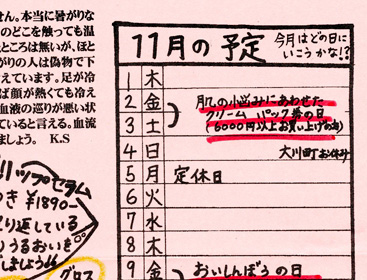 せん。本当に暑がりな
のどこを触っても温
ところは無いが、ほと
がりの人は偽物で下
えています。足が冷
ば顔が熱くても冷え
血液の巡りが悪い状
ていると言える。血流
ましょう。 K.S
リップセラム
¥1890-
り返している
うるおいを
しましょう
グロス
11月の予定
今月はどの日に
いこうかな!?
1 木
2 金 肌の小悩みにあわせた
クリームパック巻の日
3 土 (6000円以上お買い上げの方)
4 日 大川町お休み
5 月 定休日
6 火
7 水
8 木
9 金 おいしんぼうの日